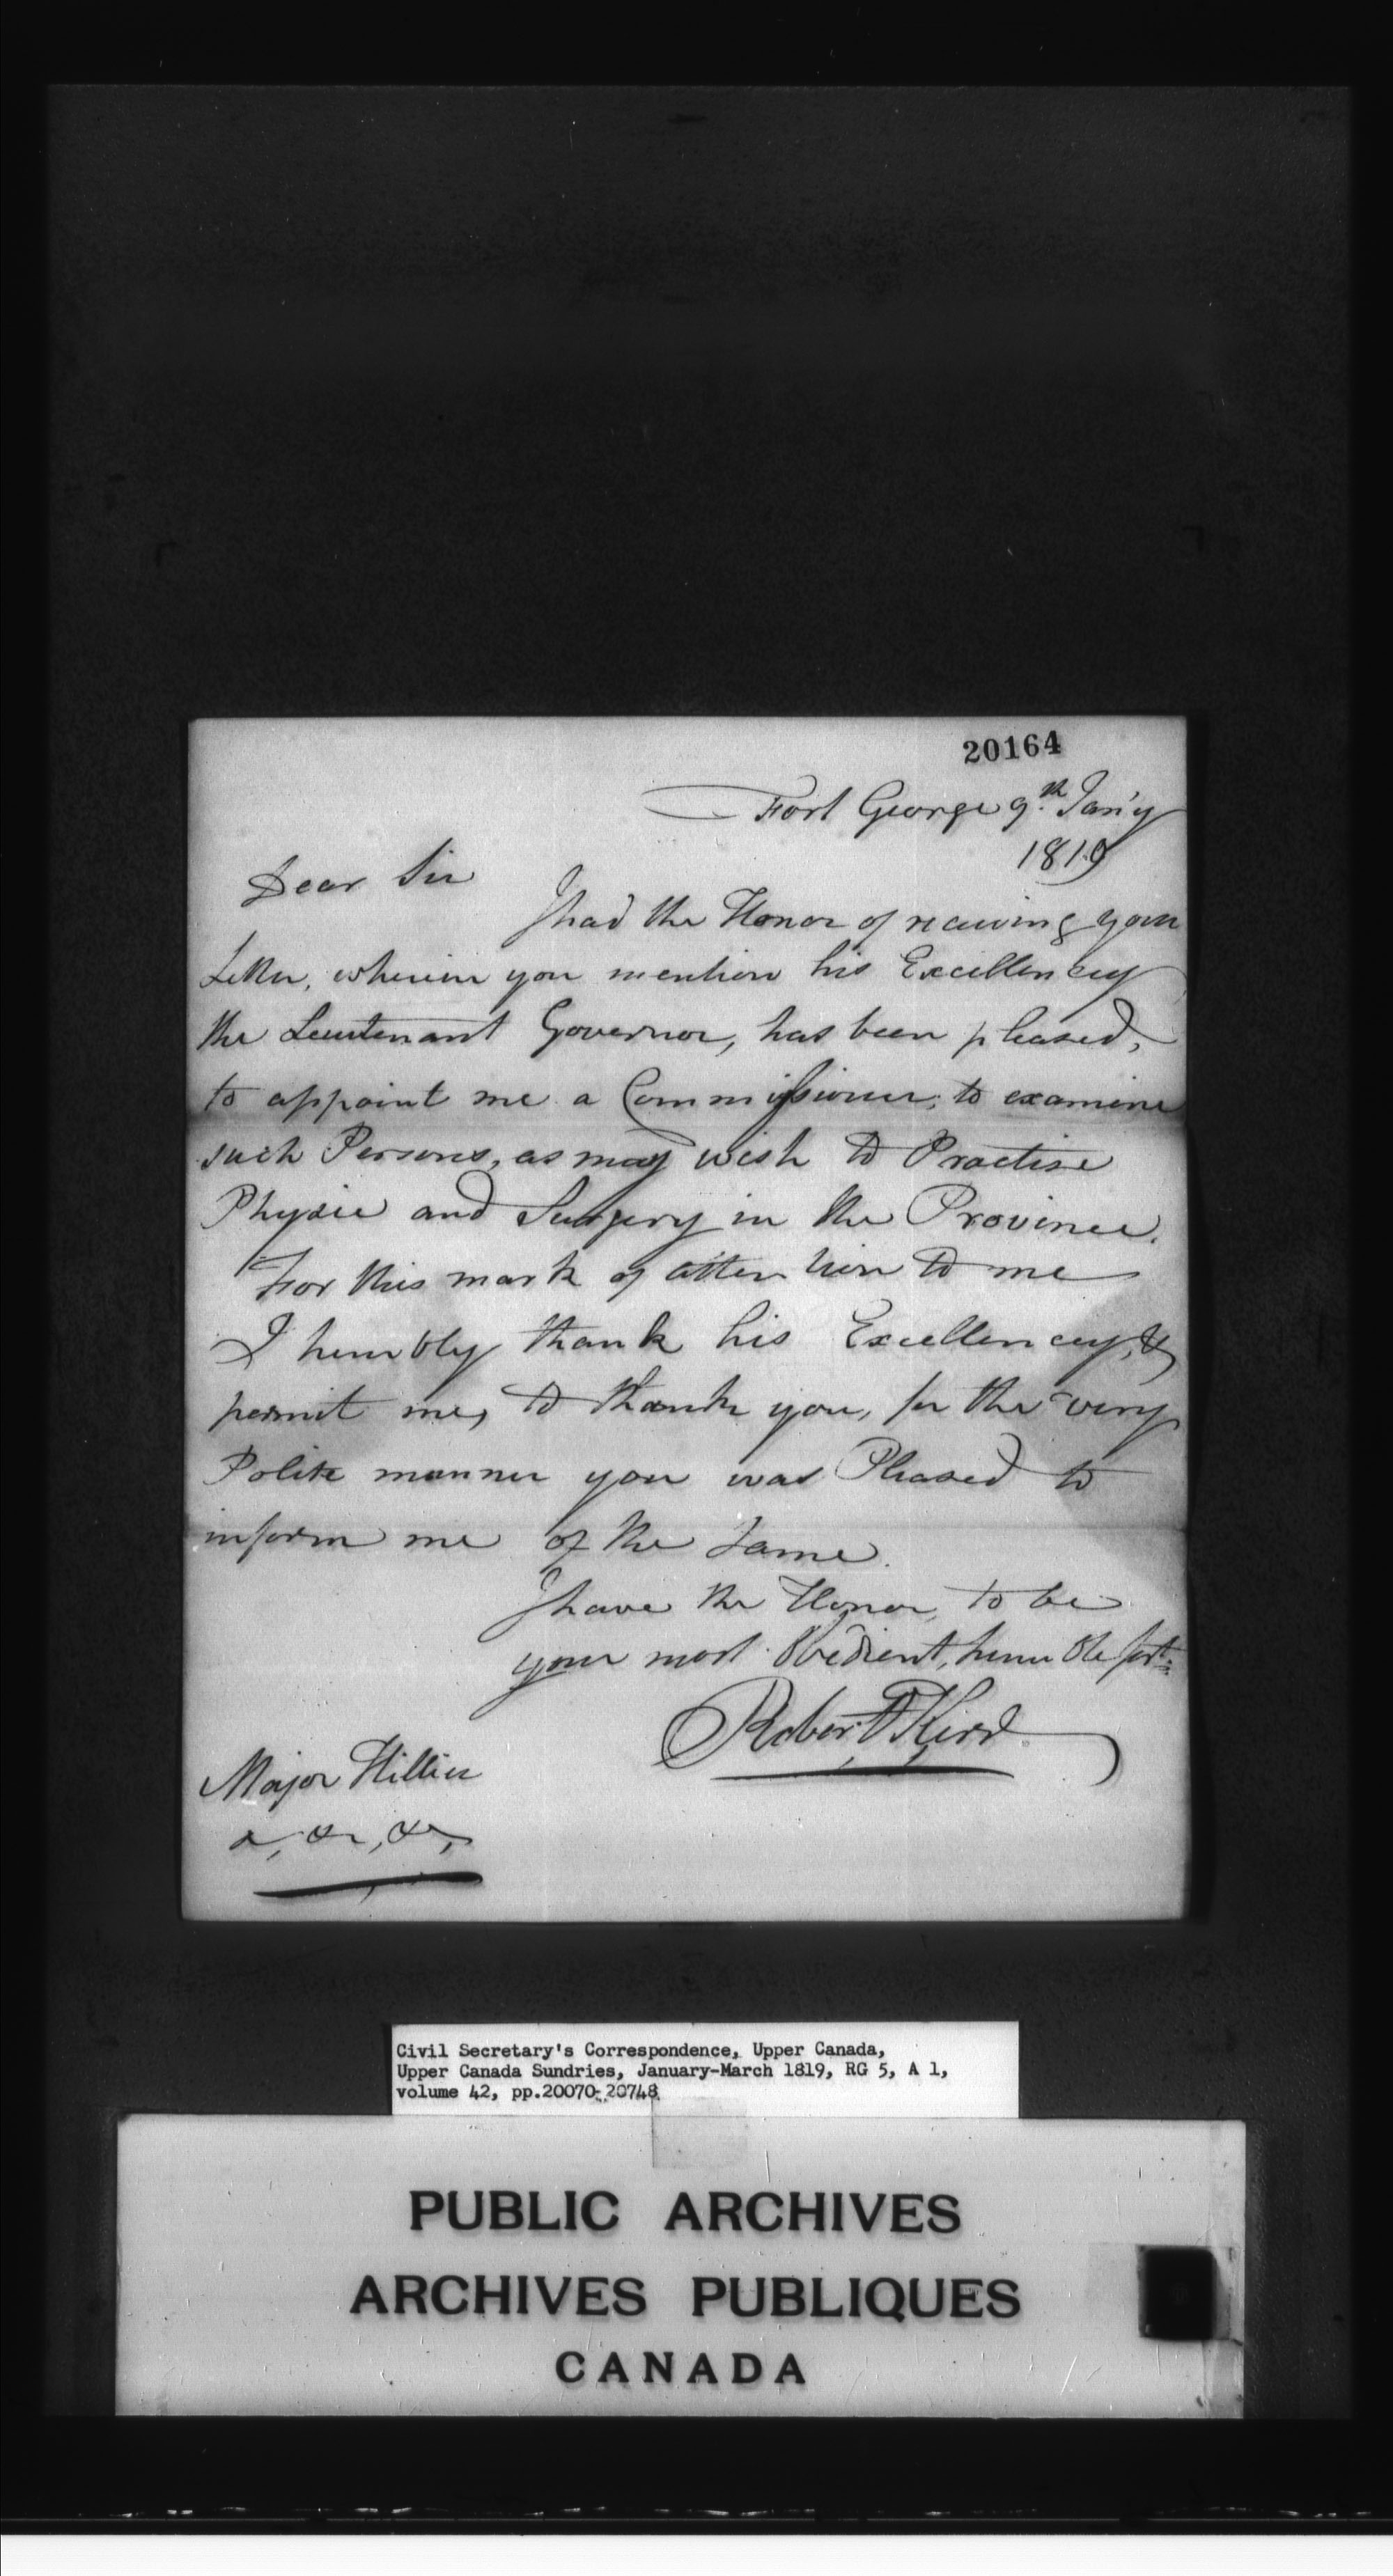 20164
Fort George 9th Jan'y
1819
Dear Sir
I had the Honor of receiving your
Letter, wherein you mention his Excellencey
the Leutenant Governor, has been pleased,
to appoint me a Commissioner, to examine
such Persons, as may wish to Practise
Physic and Surgery in the Province.
For this mark of attention to me
I humbly thank his Excellencey, &
permit me, to thank you, for the very
Polite manner you was Pleased to
inform me of the Same.
I have the Honor, to be
your most Obedient, humble Sert.
Robert Kerr
Major Hillier
&, &c, &c,
Civil Secretary's Correspondence, Upper Canada,
Upper Canada Sundries, January-March 1819, RG 5, A 1,
volume 42, pp.20070-20748
PUBLIC ARCHIVES
ARCHIVES PUBLIQUES
CANADA